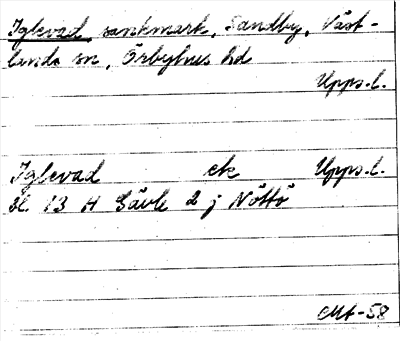 Iglevad sankmark, Sandby, Väst-
lands sn, Örbyhus hd
Upps.l.
Iglevad ek Upps.l.
bl. 13 H Gävle 2 j Nöttö
MA-58